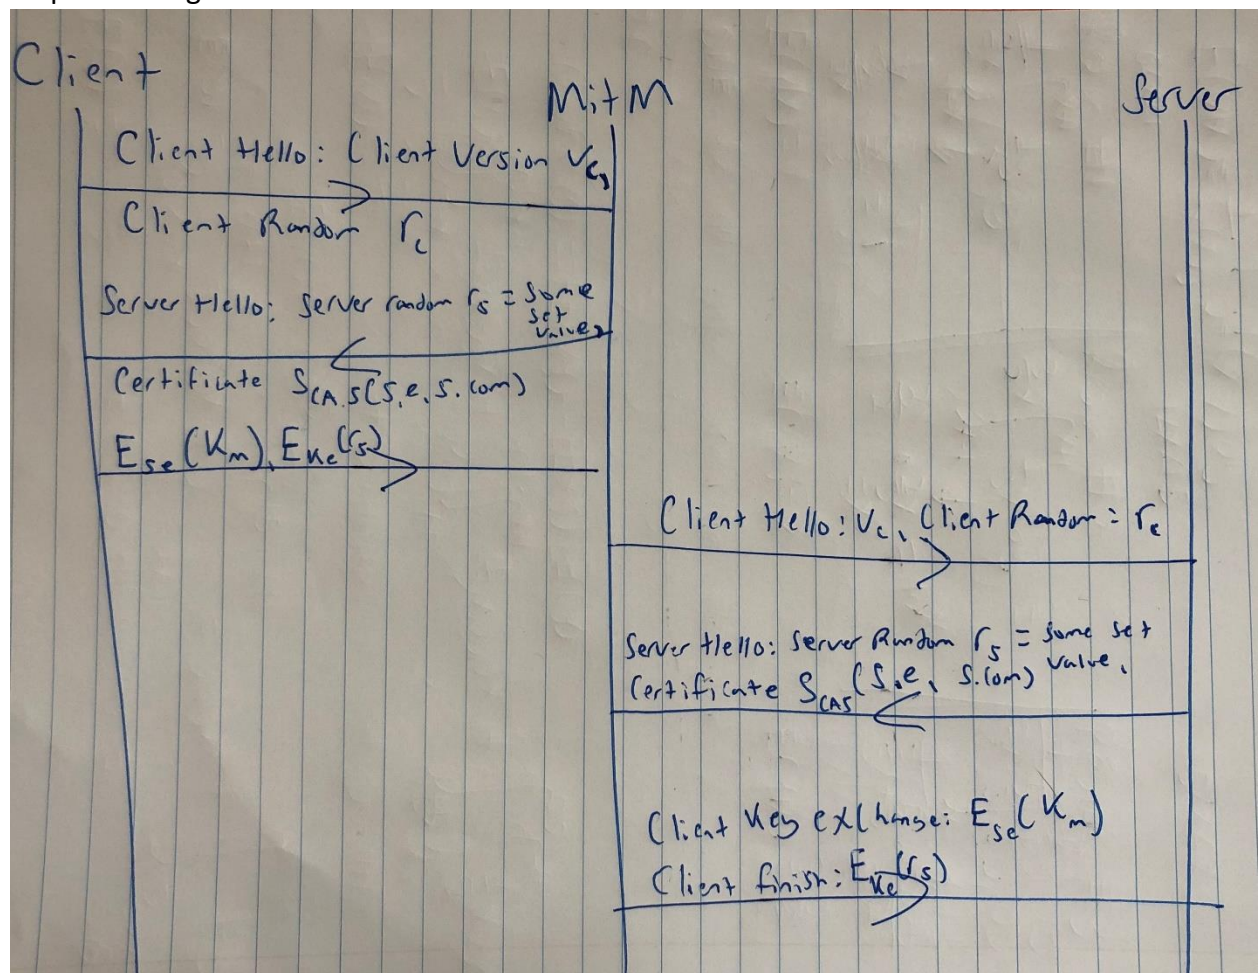 Client
MitM
Server
Client Hello: Client Version Vc,
Client Random rc
Server Hello: Server random rs = Some
set
value,
Certificate SCA.S(S.e, S.com)
ESe(Km), EKc(rs)
Client Hello: Vc, Client Random = rc
Server Hello: Server Random rs = Some set
value,
Certificate SCAS(S.e, S.com)
Client Key exchange: ESe(Km)
Client finish: EKc(rs)